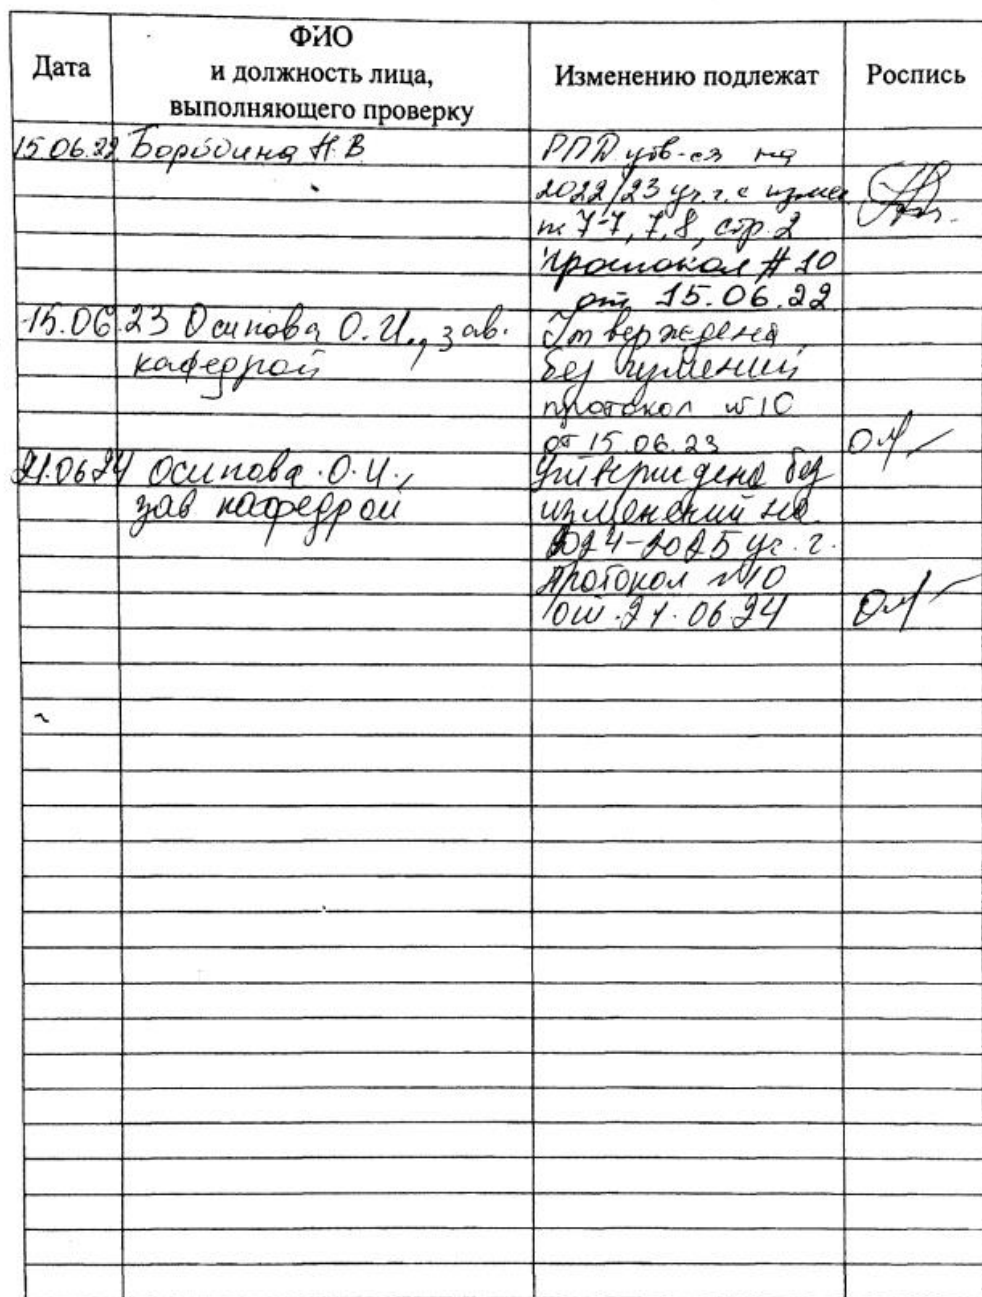 Дата
ФИО
и должность лица,
выполняющего проверку
Изменению подлежат
Роспись
15.06.22 Бородина Н.В.
РПД утв-ся на
2022/23 уч.г. с
7, 8, стр. 2
протокол # 10
от 15.06.22
15.06.23 Осипова О.И., зав.
кафедрой
Утверждена
без изменений
протокол №10
от 15.06.23
21.06.24 Осипова О.И.,
зав кафедрой
Утверждена без
изменений на
2024-2025 уч. г.
Протокол №10
от 21.06.24